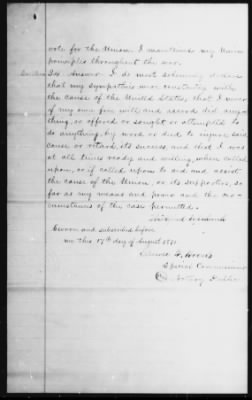 vote for the Union. I maintained my Union
principles throughout the war.
34 Answer. I do most solemnly declare
that my sympathies were constantly with
the cause of the United States, that I never
of my own free will and accord did any
thing, or offered or sought or attempted to
do anything, by word or deed to injure said
cause or retard its success, and that I was
at all times ready and willing, when called
upon, or if called upon to aid and assist
the cause of the Union, or its supporters, so
far as my means and power and the cir
cumstances of the case permitted.
Sworn and subscribed before
me this 17th day of August 1871
Special Commissioner
Notary Public